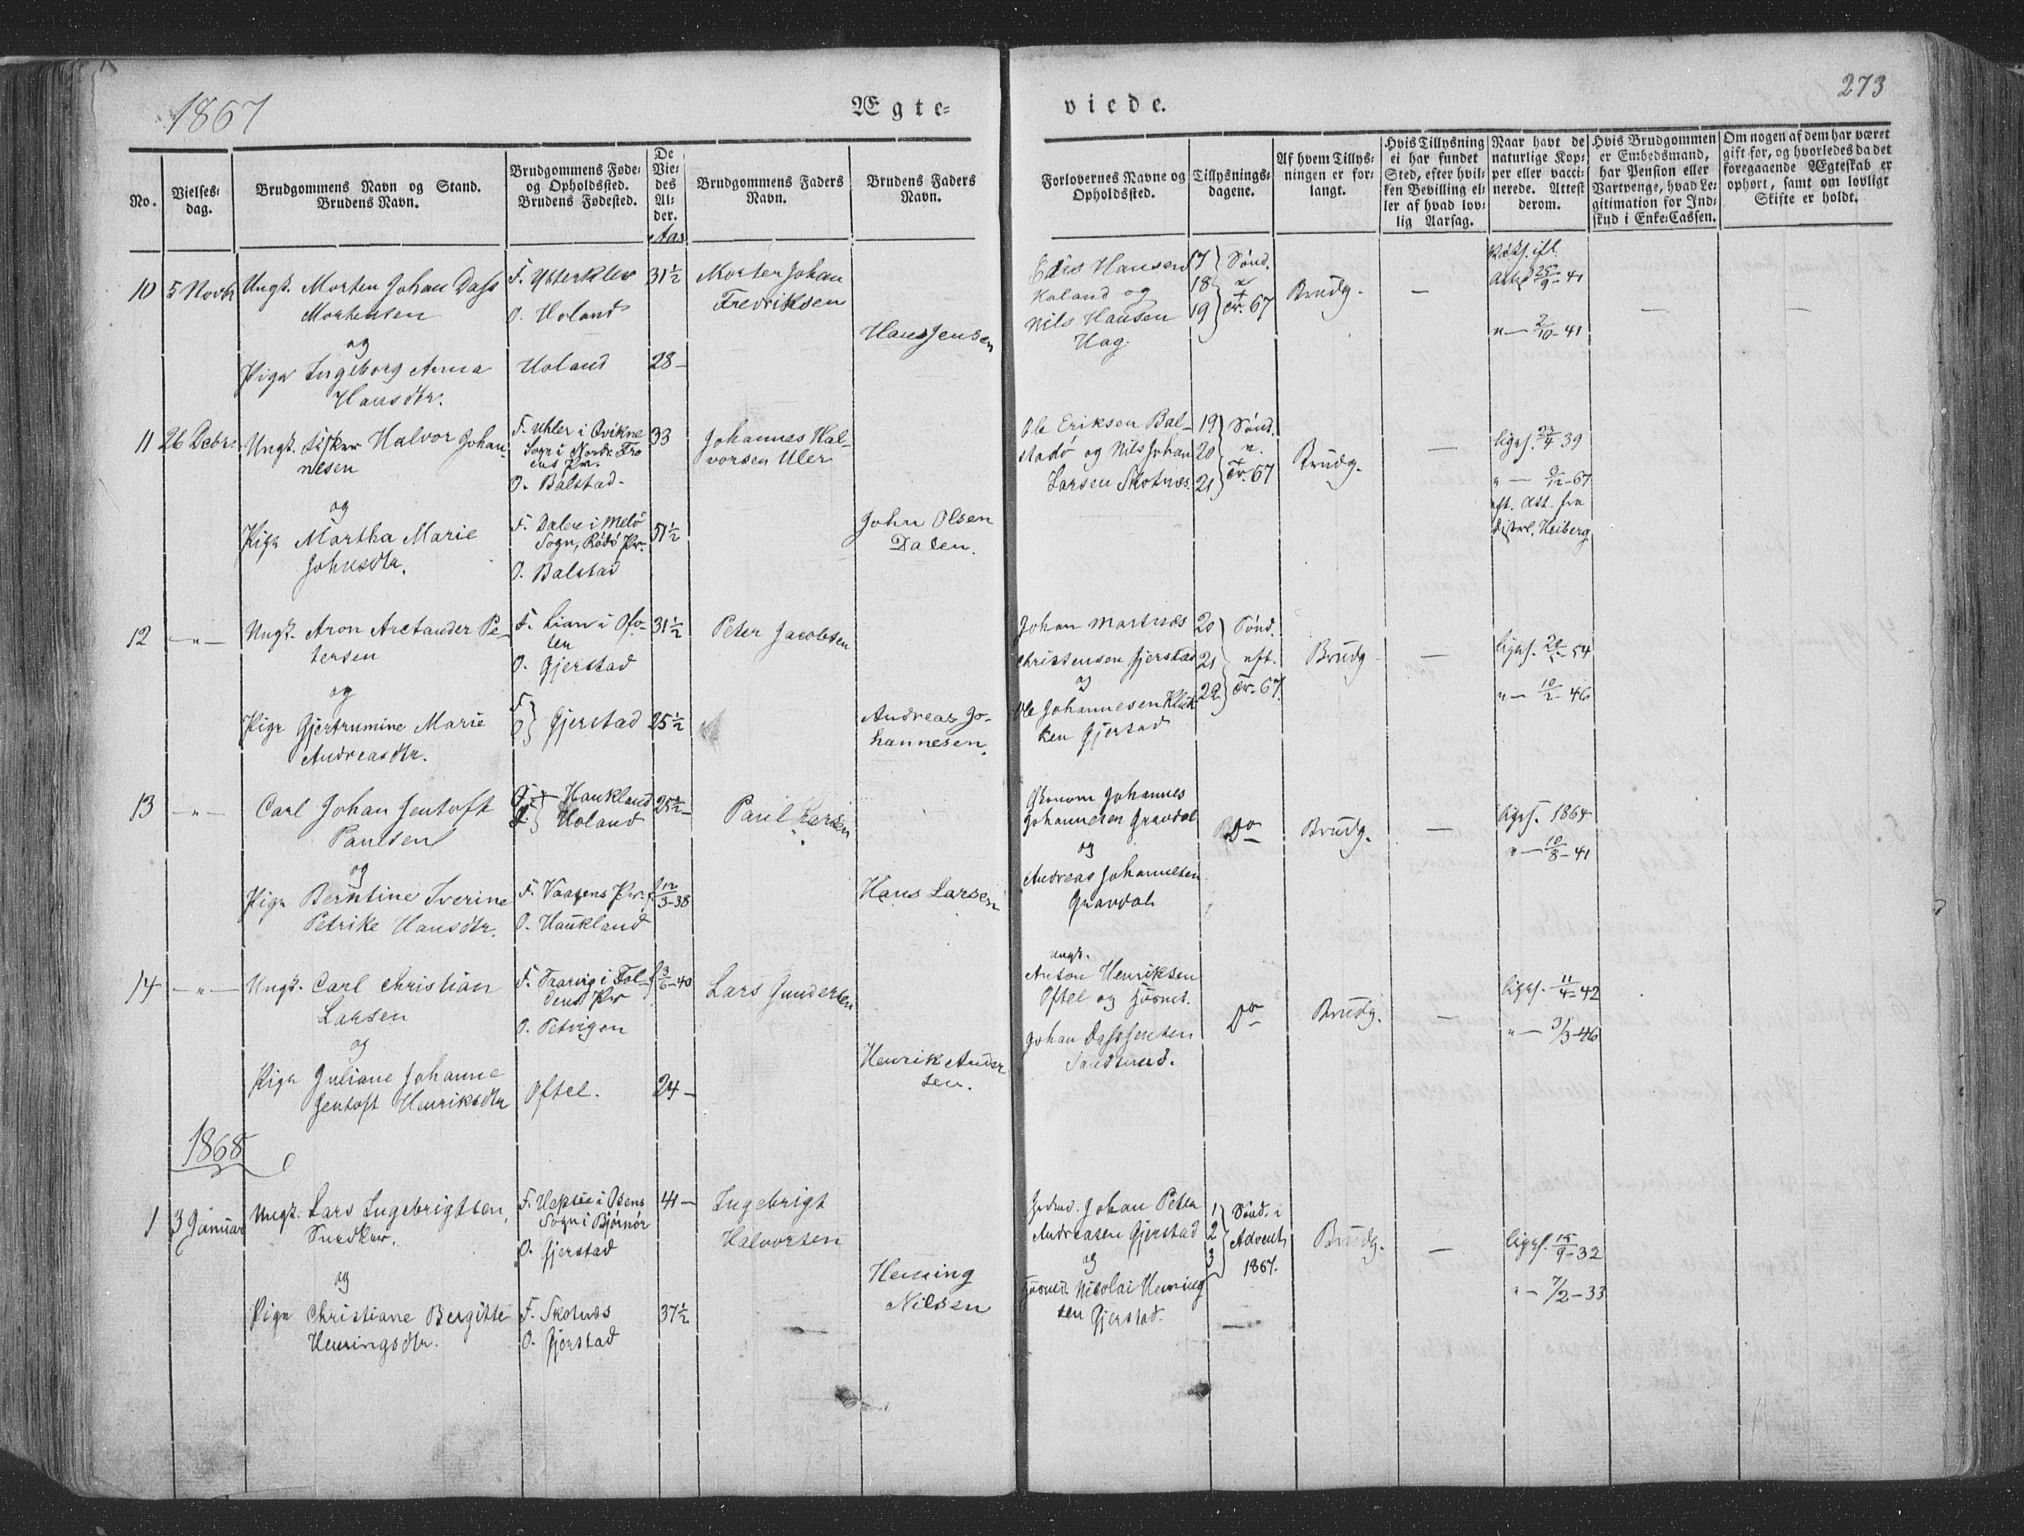 1867
Ægte-
viede.
273
No.
Vielses-
dag.
Brudgommens Navn og Stand.
Brudens Navn.
Brudgommens Føde-
og Opholdssted.
Brudens Fødested.
De
Vie-
des
Al-
der.
Aar
Brudgommens Faders
Navn.
Brudens Faders
Navn.
Forlovernes Navne og
Opholdssted.
Tillysnings-
dagene.
Af hvem Tillys-
ningen er for-
langt.
Hvis Tillysning
ei har fundet
Sted, efter hvil-
ken Bevilling el-
ler af hvad lov-
lig Aarsag.
Naar havt de
naturlige Kop-
per eller vacci-
nerede. Attest
derom.
Hvis Brudgommen
er Embedsmand,
har Pension eller
Vartpenge, hvad Le-
gitimation for Ind-
skud i Enke-Cassen.
Om nogen af dem har været
gift før, og hvorledes da det
foregaaende Ægteskab er
ophørt, samt om lovligt
Skifte er holdt.
10
5 Novbr
Ungk. Morten Johan Dass
Mortensen
og
Pige Ingeborg Anna
Hansdtr.
F. Ytterklev
O. Holand
Holand
31 1/2
28 –
Morten Johan
Fredriksen
Hans Jensen
Hansen
Holand og
Nils Hansen
Hag.
17
18
19
Sønd.
Tr. 67
Brudg.
—
25/9 - 41
" — 2/10 - 41
—
—
11
26 Decbr.
Ungk. Halvor Johan-
nesen
og
Pige Martha Marie
Johnsdtr.
F. Uhler i Qvikne
Sogn i Nordr. Tro
O. Balstad
F. Dalen i Melö
Sogn, Rödö Pr.
O. Balstad
33
51 1/2
Johannes Hal-
vorsen Uler
John Olsen
Dalen.
Ole Eriksen Bal-
stad og Nils Johan
Larsen Skotnæs.
19
20
21
Sønd.
e.
Tr. 67
Brudg.
—
ligs. 23/4 39
" — 9/12 - 67
eft. Att. fra
Distrl. Heiberg
12
— " —
Ungk. Aron Arctander Pe-
tersen
og
Pige Gjertrumine Marie
Andreasdtr.
F. Lian i Ofo-
ten
O. Gjerstad
F.
O. } Gjerstad
31 1/2
25 1/2
Peter Jacobsen
Andreas Jo-
hannesen.
Johan Martnæs
Christensen Gjerstad
og
Ole Johannesen Klik
ken Gjerstad
20
21
22
Sønd.
eft.
Tr. 67.
Brudg.
—
" — 10/2 - 46
13
— " —
Carl Johan Jentoft
Paulsen
og
Pige Berntine Iverine
Petrike Hansdtr.
Haukland
Holand
F. Vaagens Pr.
O. Haukland
25 1/2 –
12/3 - 38
Paul Larsen
Hans Larsen
Økonom Johannes
Johannesen Gravdal
og
Andreas Johannesen
Gravdal
Do
Brudg.
—
ligs. 1864
" — 10/8 - 41
14
— " —
Ungk. Carl Christian
Larsen
og
Pige Juliane Johanne
Jentoft Henriksdtr
F. Taarvig i Fol-
dens Pr
O. Petvigen
Oftel.
3/6 - 40
24 –
Lars Gundersen
Henrik Ander
sen.
ungk.
Anton Henriksen
Oftel og
Johan Dass Jensen
Sandsund.
Do
Brudg.
—
ligs. 11/4 - 42
" — 3/3 - 46
1868
1
3 Januar
Ungk. Lars Ingebrigtsen,
Snedker.
og
Pige Christiane Bergitte
Henningsdtr.
F. i Osens
Sogn i Bjørnør
O. Gjerstad
F. Skotnæs
O. Gjerstad
41 –
37 1/2
Ingebrigt
Halvorsen
Hening
Nilsen
Johan Peter
Andreasen Gjerstad
og
Nicolai Hening
sen Gjerstad.
1
2
3
Sønd. i
Advent
1867.
—
Brudg.
—
ligs. 15/9 - 32
" — 7/2 - 33